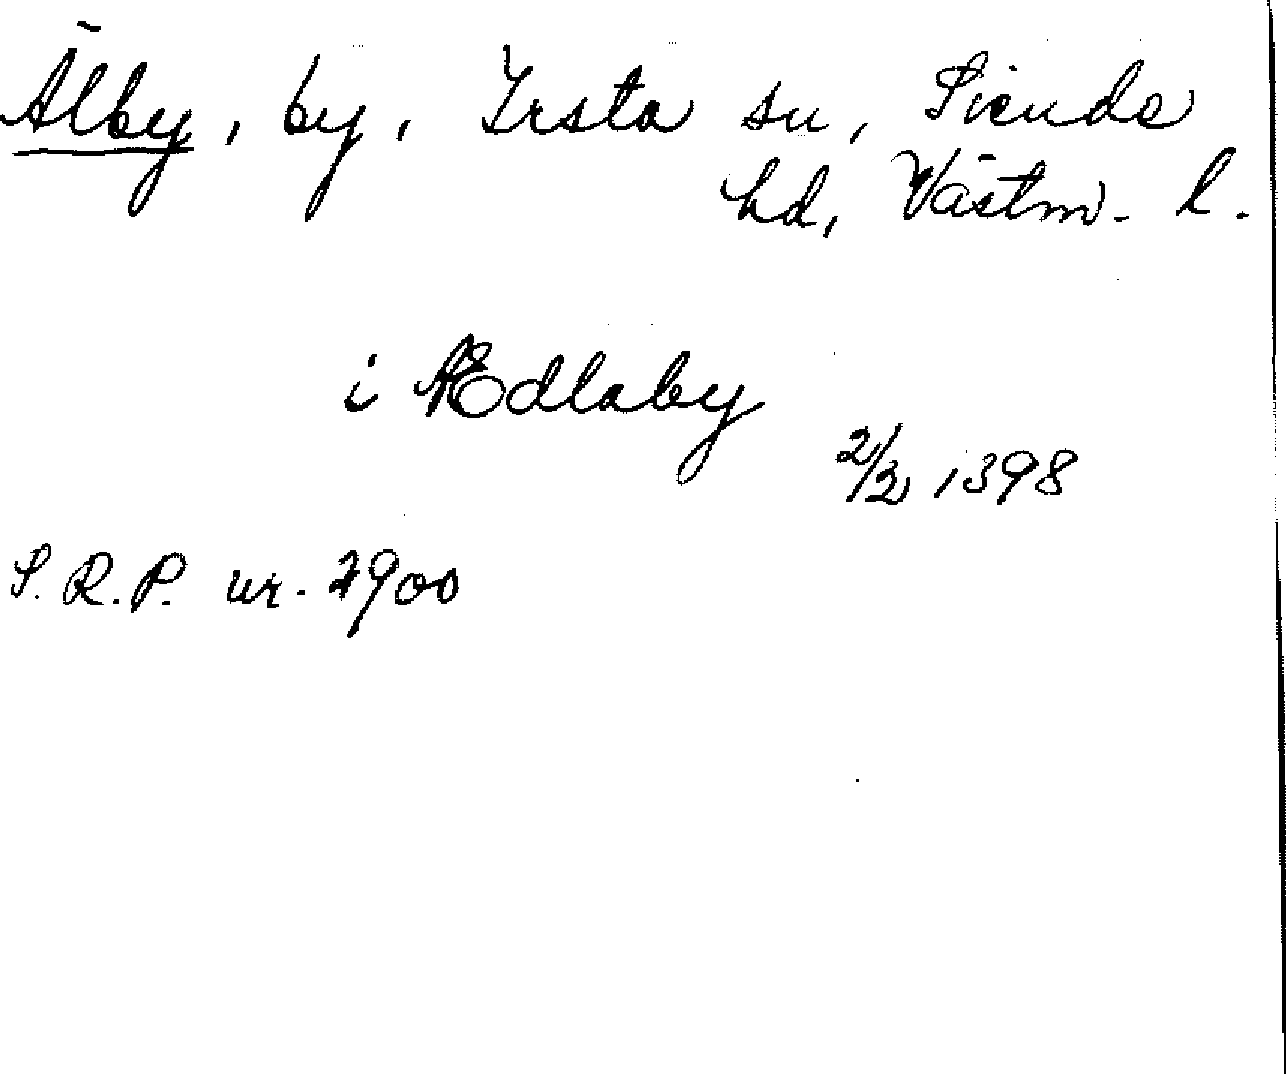 Älby, by, Irsta sn, Siende
hd, Västm. l.
i Ædlaby
2/3 1398
S.R.P. nr. 2900